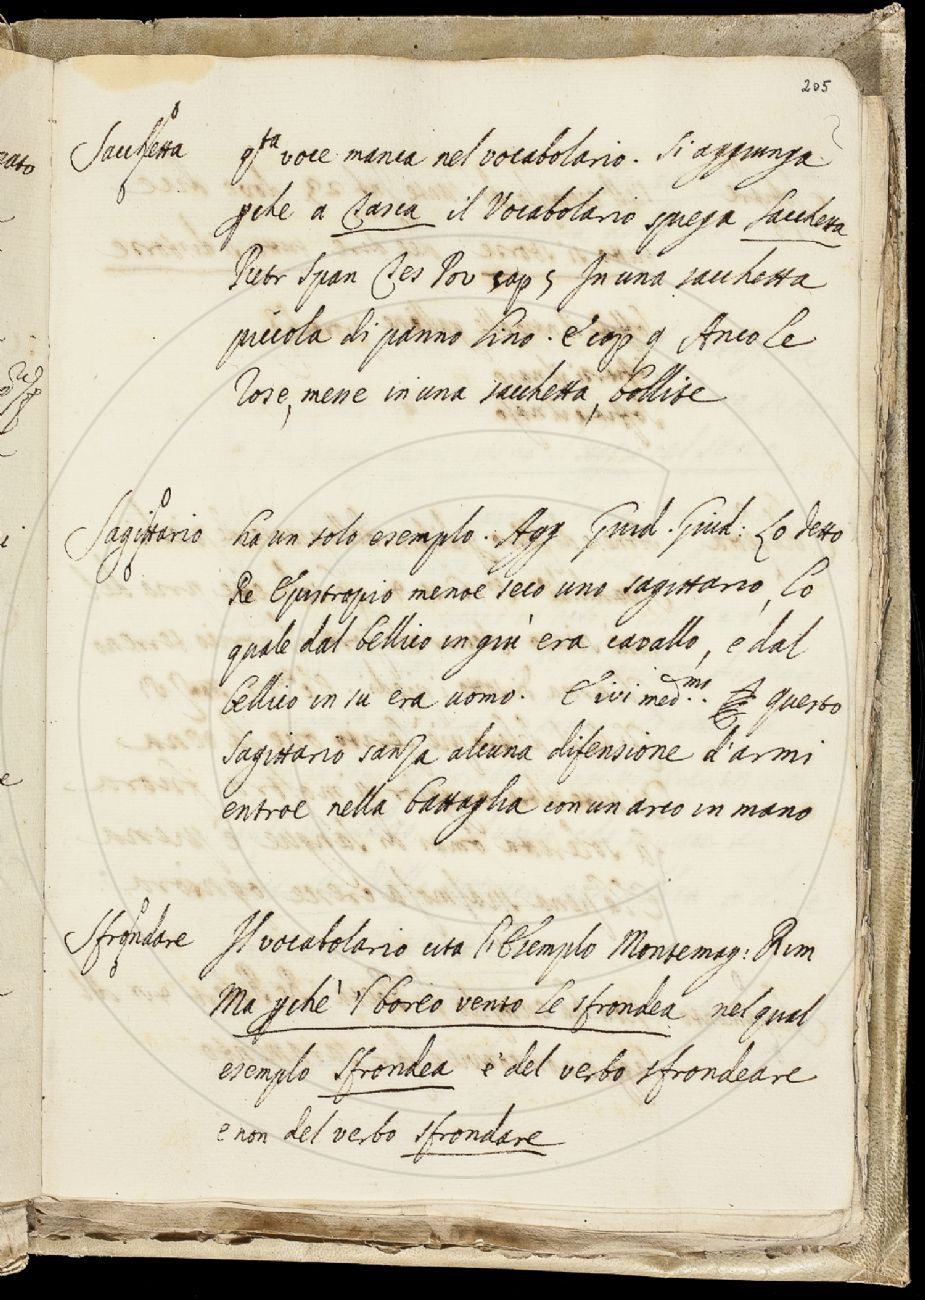 205
Sacchetta
q.sta voce manca nel vocabolario. Si aggiunga
pche a Tasca il Vocabolario spiega Sacchetta
Pietr Span Tes Pov cap 5 In una sacchetta
piccola di panno lino. E cap 9 Anco le
rose, mene in una sacchetta, bollite
Sagittario
ha un solo esemplo. Agg Guid. Giud: Lo detto
Re Epistropio menoe seco uno sagittario, lo
quale dal bellico in giù era cavallo, e dal
bellico in su era uomo. E ivi med.mo questo
sagittario sanza alcuna difensione d'armi
entroe nella battaglia con un arco in mano
Sfrondare
Il vocabolario cita l'Esemplo Montemag: Rim
Ma pchè 'l boreo vento le sfrondea nel qual
esemplo sfrondea è del verbo sfrondeare
e non del verbo sfrondare